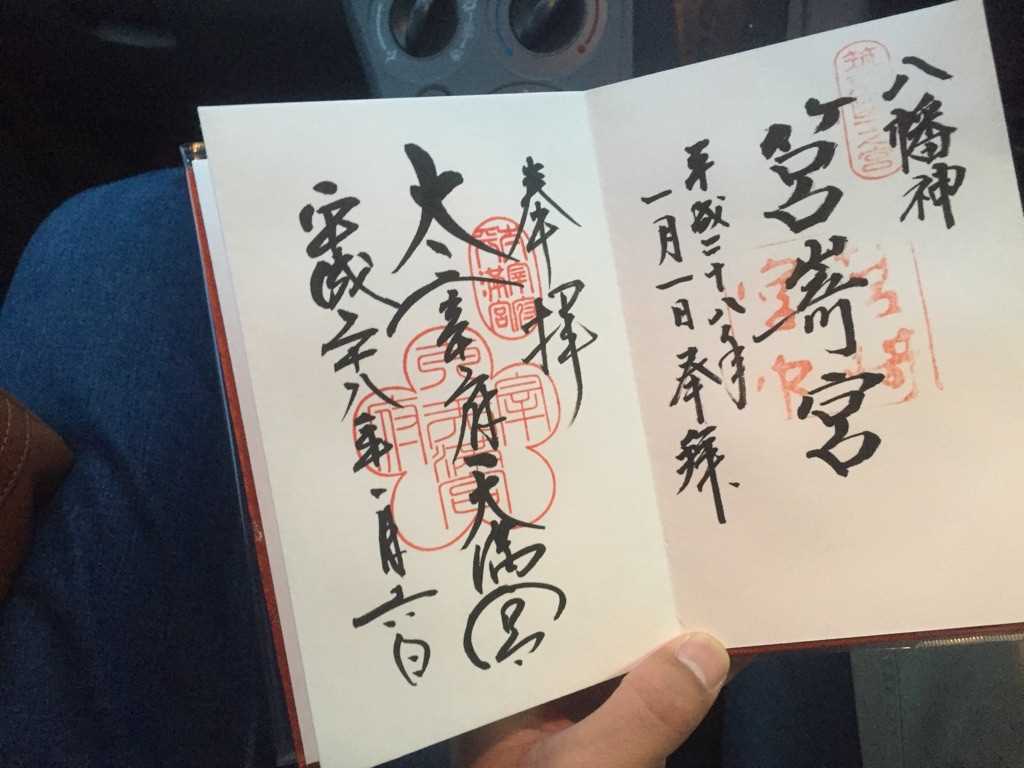 八幡神
筥嵜宮
平成二十八年
一月一日奉拜
奉拝
太宰府天満宮
平成二十八年一月六日